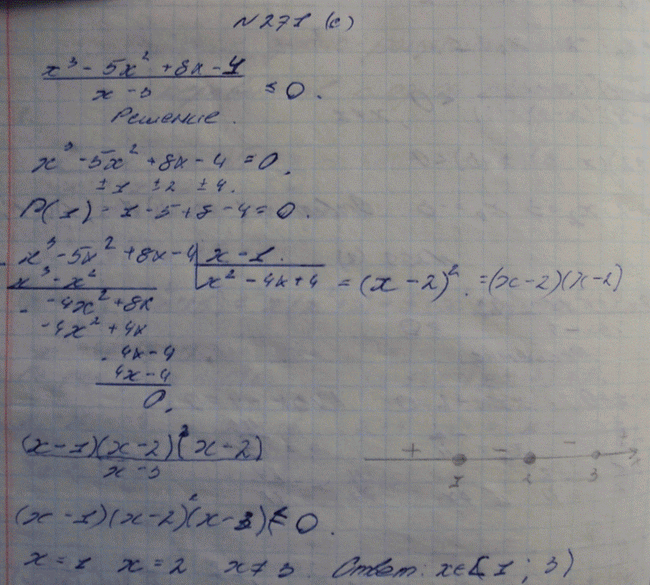 N 271 (c)
x³ - 5x² + 8x - 4
x - 3 ≤ 0.
Решение.
x³ - 5x² + 8x - 4 = 0.
±1 ±2 ±4.
P(1) = 1 - 5 + 8 - 4 = 0.
x³ - 5x² + 8x - 4 | x - 1.
x³ - x² | x² - 4x + 4 = (x - 2)². = (x - 2)(x - 2)
- -4x² + 8x
-4x² + 4x
- 4x - 4
4x - 4
0.
(x - 1)(x - 2)²(x - 2)
x - 3
+ - -
1 2 3
(x - 1)(x - 2)²(x - 3) ≤ 0.
x = 1 x = 2 x ≠ 3 Ответ: x ∈ [1; 3)